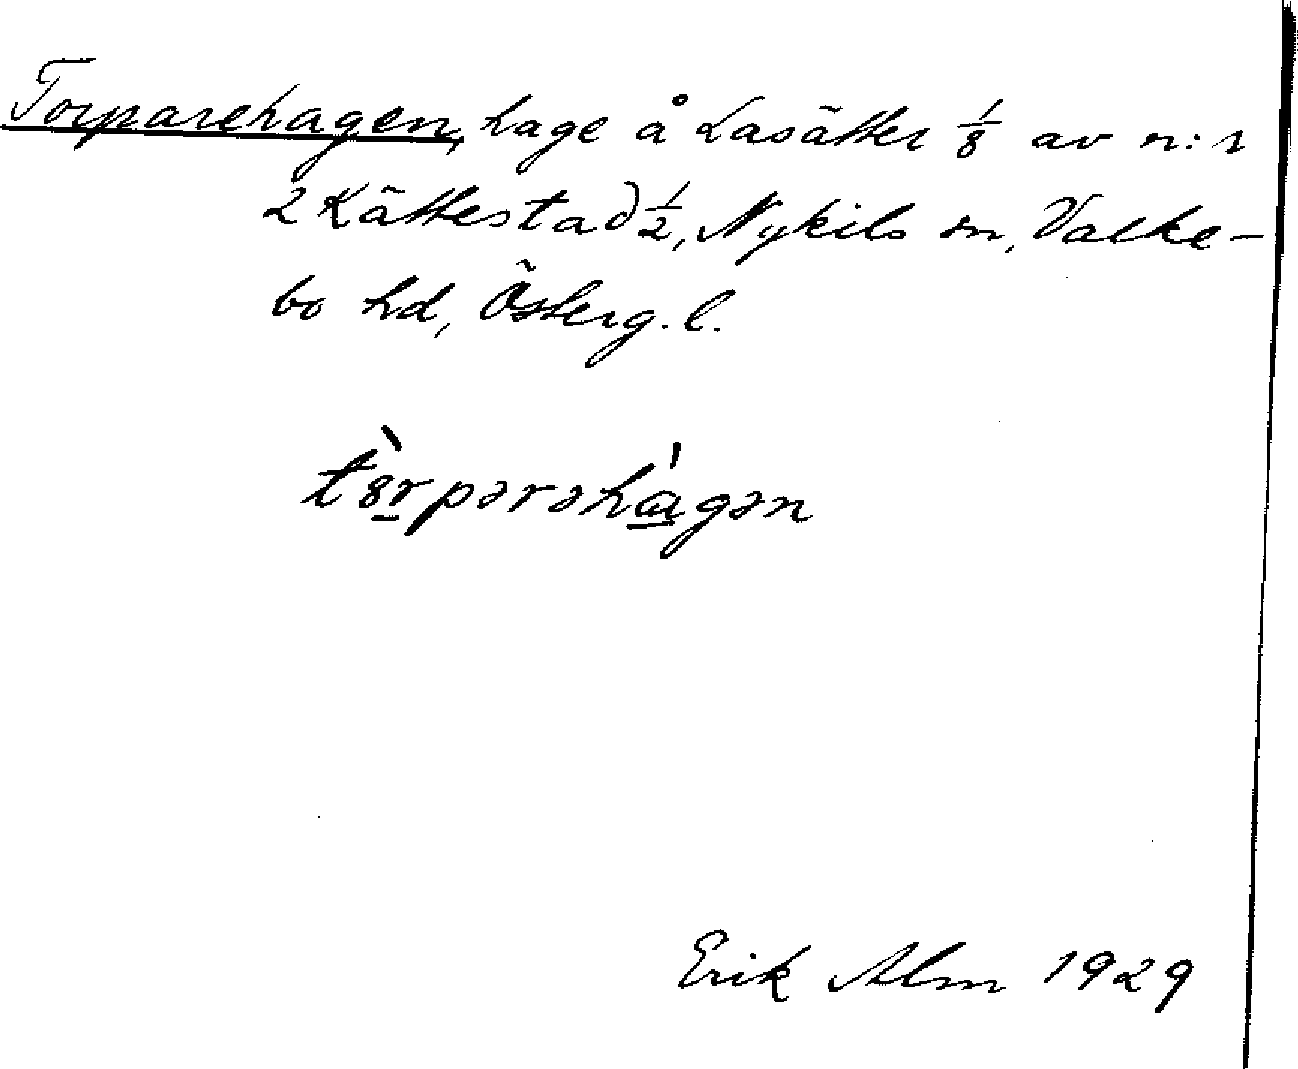 Torparehagen, hage å Lasätter 1/8 av n:r
2 Kättestad 1/2, Nykils sn, Valke-
bo hd, Österg. l.
tȣ̀rpərəhágən
Erik Alm 1929